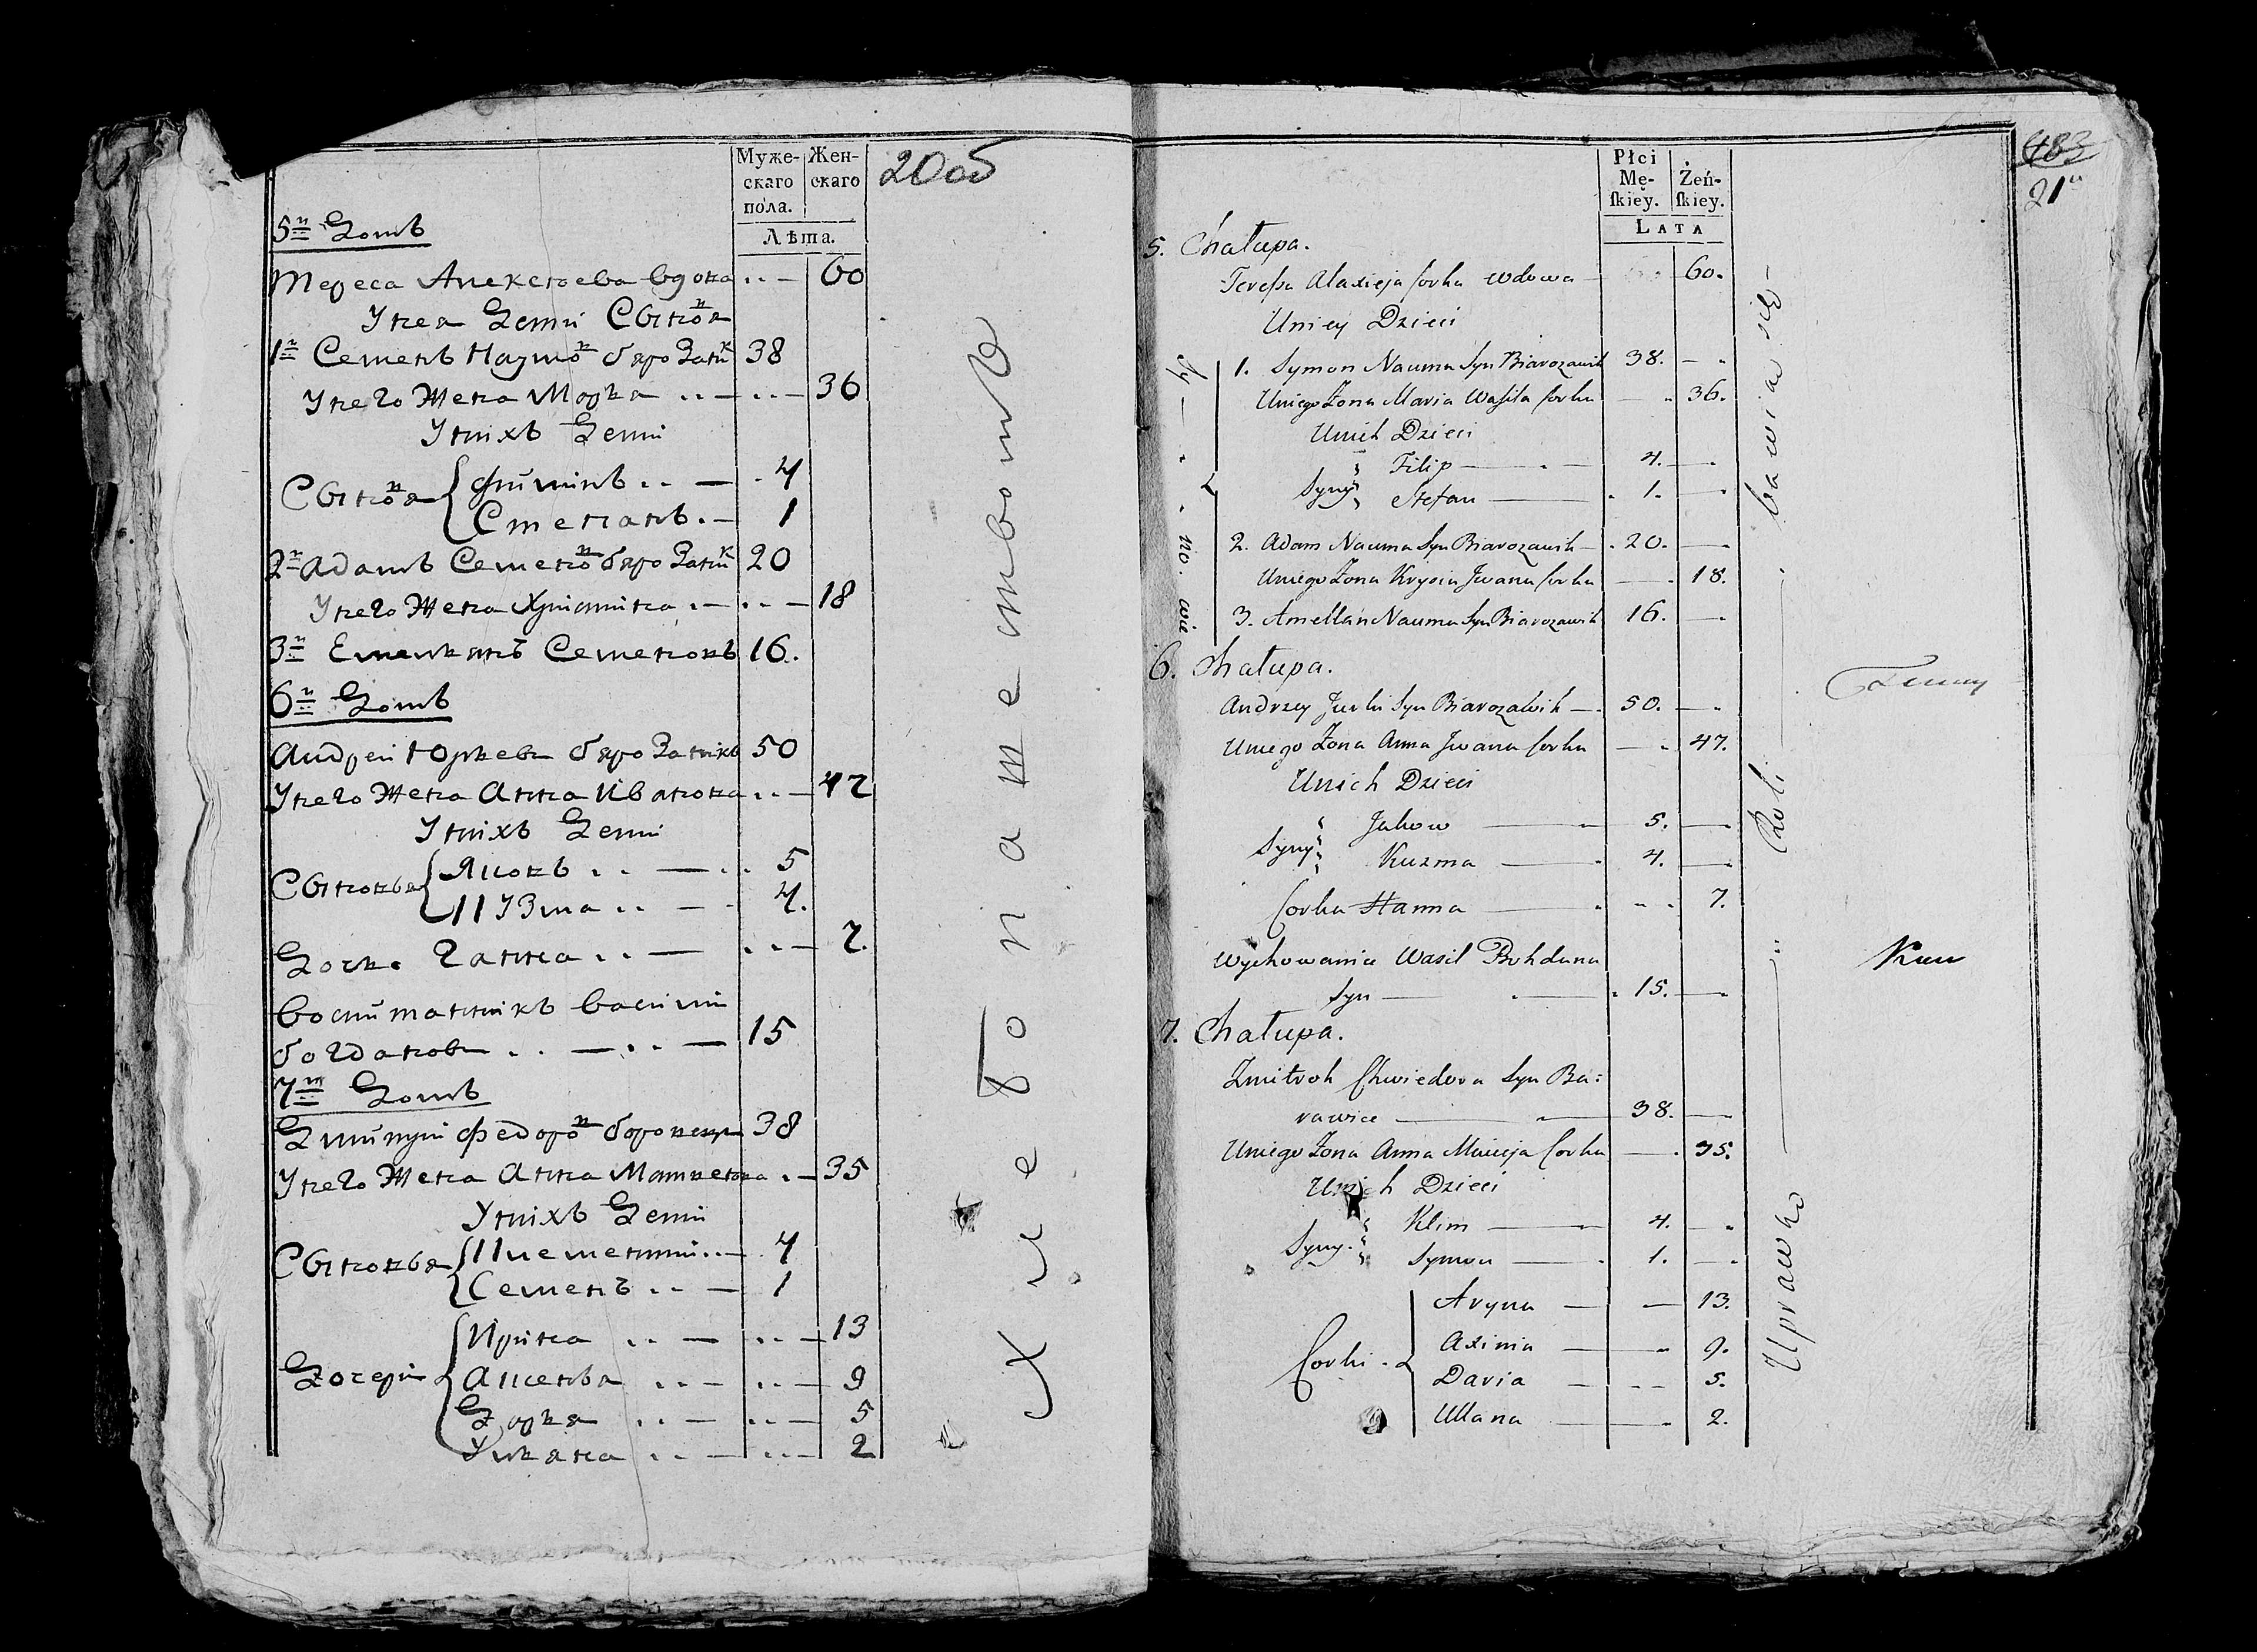 Муже-
скаго
пола.
Жен-
скаго
Лѣта.
20об
5й Домъ
Тереса Алексѣева вдова 60
У нея Дети Сыновя
1й Семенъ Наумов бярозавик 38
У него Жена Маря 36
У нихъ Дети
Сыновя
Филипъ 4
Степанъ 1
2й Адамъ Семенов бярозавик 20
У него Жена Христина 18
3й Емельянъ Семеновъ 16.
6й Домъ
Андрей Юрьевъ бярозавикъ 50
У него Жена Анна Иванова 47
У нихъ Дети
Сыновья
Яковъ 5
Кузма 4.
Дочь. Ганна 7.
Воспитанникъ Василий
богданов 15
7й Домъ
Дмитрий Федоров боровец 38
У него Жена Анна Матвеева 35
У нихъ Дети
Сыновья
Клементий 4
Семенъ 1
Дочери
Ирина 13
Аксенья 9
Дарья 5
Ульяна 2
Хлебопашествомъ
Płci
Mę-
ſkiey.
Żeń-
ſkiey.
LATA
483
21
5. Chałupa.
Teressa Alaxieja Corka wdowa 60.
Uniey Dzieci
Sy no wie
1. Symon Nauma Syn Biarozawik 38.
Uniego Żona Maria Wasila Corka 36.
Unich Dzieci
Syny
Filip 4.
Stefan 1.
2. Adam Nauma Syn Biarozawik 20.
Uniego Żona Krysia Jwana Corka 18.
3. Amellan Nauma Syn Biarozawik 16.
6. Chałupa.
Andrzey Jurki Syn Biarozawik 50.
Uniego Żona Anna Jwana Corka 47.
Unich Dzieci
Syny
Jakow 5.
Kuzma 4.
Corka Hanna 7.
Wychowanie Wasil Bohdana
Syn 15.
7. Chałupa.
Zmitrok Chwiedora Syn Ba:
rawice 38.
Uniego Żona Anna Macieja Corka 35.
Unich Dzieci
Syny.
Klim 4.
Symon 1.
Corki
Aryna 13.
Axinia 9.
Daria 5.
Ullana 2.
Uprawko Roli bawia się